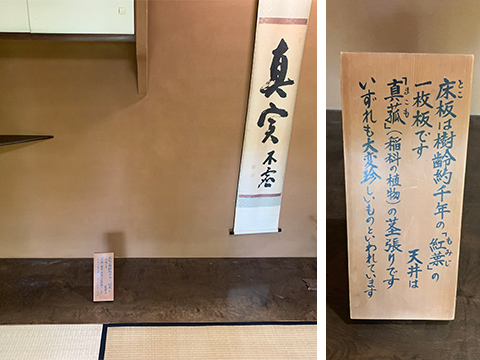 真実不虚
床板は樹齢約千年の「紅葉」の
とこ もみじ
一枚板です 天井は
「真菰」(稲科の植物)の茎張りです
まこも
いずれも大変珍しいものといわれています